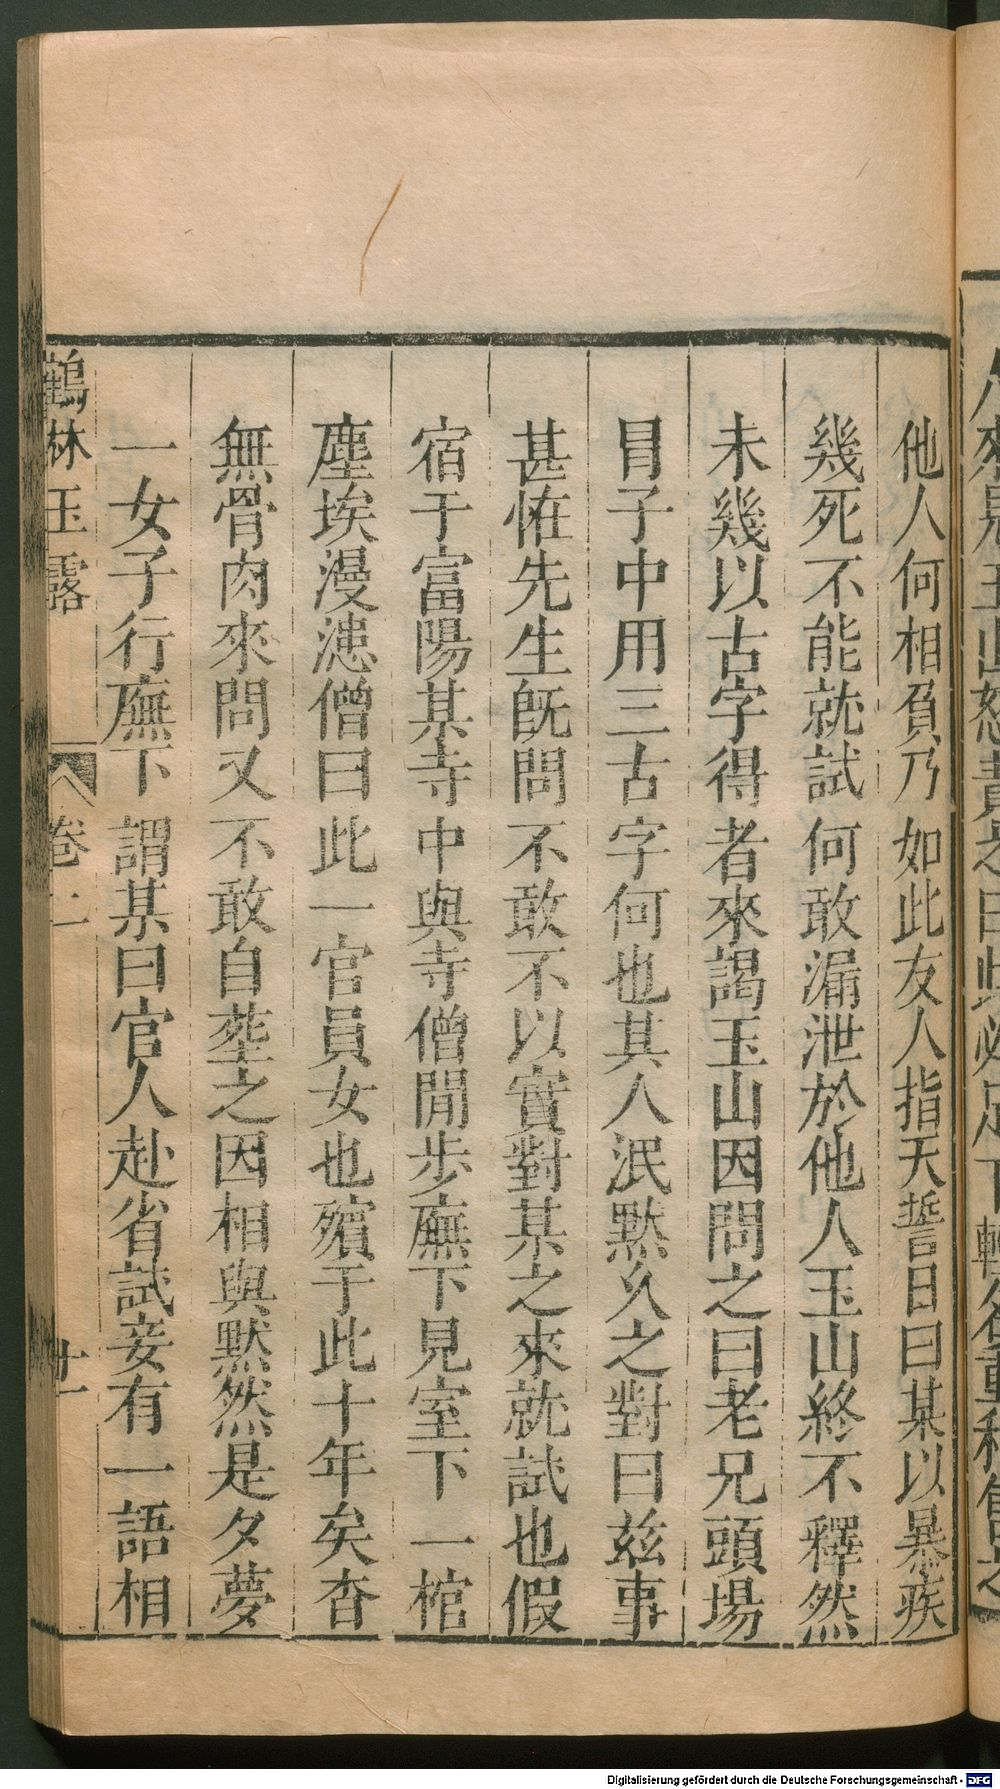 他人何相負乃如此友人指天誓日曰某以暴疾
幾死不能就試何敢漏泄於他人玉山終不釋然
未幾以古字得者來謁玉山因問之曰老兄頭場
冐子中用三古字何也其人泯黙久之對曰茲事
甚恠先生旣問不敢不以實對某之來就試也假
宿于富陽某寺中與寺僧閒步廡下見室下一棺
塵埃漫漶僧曰此一官員女也殯于此十年矣杳
無骨肉來問又不敢自塟之因相與黙然是夕夢
一女子行廡下謂某曰官人赴省試妾有一語相
鶴林玉露
卷二
十一
Digitalisierung gefördert durch die Deutsche Forschungsgemeinschaft - DFG